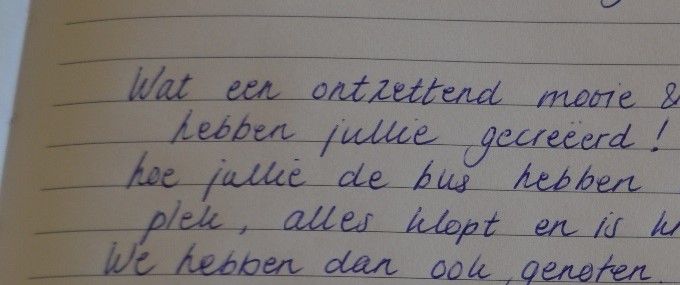 Wat een ontzettend mooie &
hebben jullie gecreëerd!
hoe jullie de bus hebben
plek, alles klopt en is
We hebben dan ook genoten.